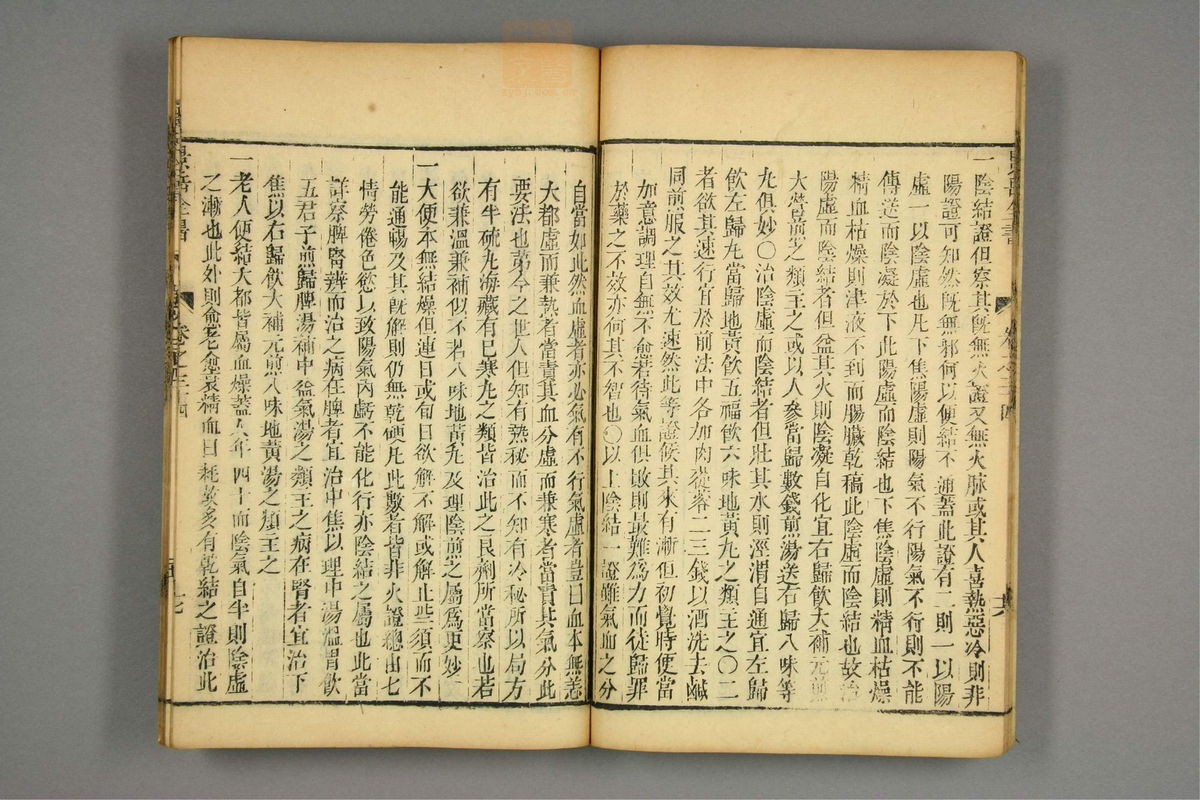 一陰結證但察其既無火證又無火脉或其人喜熱惡冷則非
陽證可知然既無邪何以便結不通蓋此證有二則一以陽
虛一以陰虛也凡下焦陽虛則陽氣不行陽氣不行則不能
傳送而陰凝於下此陽虛而陰結也下焦陰虛則精血枯燥
精血枯燥則津液不到而腸臟乾槁此陰虛而陰結也故治
陽虛而陰結者但益其火則陰凝自化宜右歸飲大補元煎
大營煎之類主之或以人參當歸數錢煎湯送右歸八味等
丸俱妙〇治陰虛而陰結者但壯其水則涇渭自通宜左歸
飲左歸丸當歸地黃飲五福飲六味地黃丸之類主之〇二
者欲其速行宜於前法中各加肉蓯蓉二三錢以酒洗去鹹
同前服之其效尤速然此等證候其來有漸但初覺時便當
加意調理自無不愈若待氣血俱敗則最難爲力而徒歸罪
於藥之不效亦何其不智也〇以上陰結一證雖氣血之分
自當如此然血虛者亦必氣有不行氣虛者豈曰血本無恙
大都虛而兼熱者當責其血分虛而兼寒者當責其氣分此
要法也第今之世人但知有熱秘而不知有冷秘所以局方
有半硫丸海藏有已寒丸之類皆治此之良劑所當察也若
欲兼溫兼補似不若八味地黃丸及理陰煎之屬爲更妙
一大便本無結燥但連日或旬日欲解不解或解止些須而不
能通暢及其既解則仍無乾硬凡此數者皆非火證總由七
情勞倦色慾以致陽氣內虧不能化行亦陰結之屬也此當
詳察脾腎辨而治之病在脾者宜治中焦以理中湯溫胃飲
五君子煎歸脾湯補中益氣湯之類主之病在腎者宜治下
焦以右歸飲大補元煎八味地黃湯之類主之
一老人便結大都皆屬血燥蓋人年四十而陰氣自半則陰虛
之漸也此外則愈老愈衰精血日耗故多有乾結之證治此
景岳全書
卷之三十四
十七